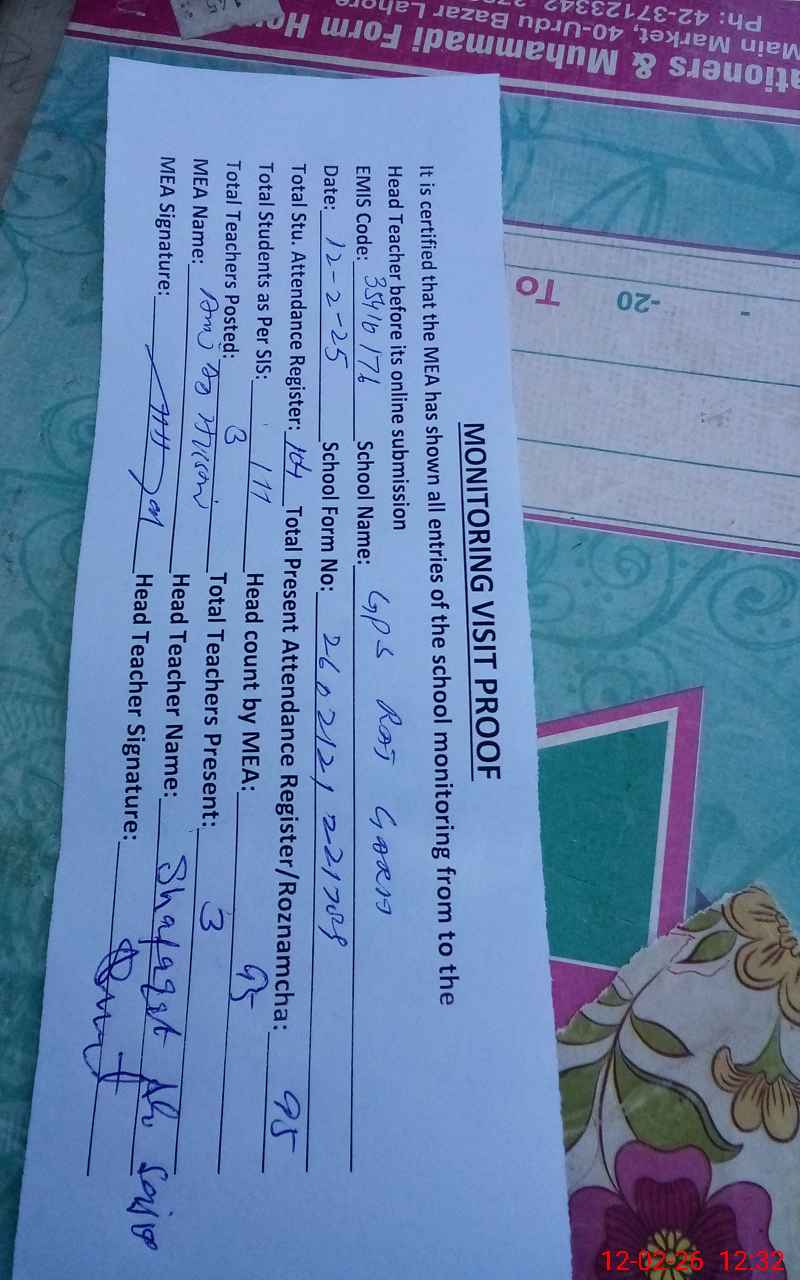 ationers & Muhammadi Form Ho
Main Market, 40-Urdu Bazar Lahore
Ph: 42-37123342
To -20 -
MONITORING VISIT PROOF
It is certified that the MEA has shown all entries of the school monitoring from to the
Head Teacher before its online submission
EMIS Code: 35416176 School Name: GPS RAJ GARH
Date: 12-2-25 School Form No:
Total Stu. Attendance Register: 104 Total Present Attendance Register/Roznamcha: 95
Total Students as Per SIS: 111 Head count by MEA: 95
Total Teachers Posted: 3 Total Teachers Present: 3
MEA Name: Head Teacher Name: Shafaqat Ali
MEA Signature: Head Teacher Signature:
12-02-26 12:32